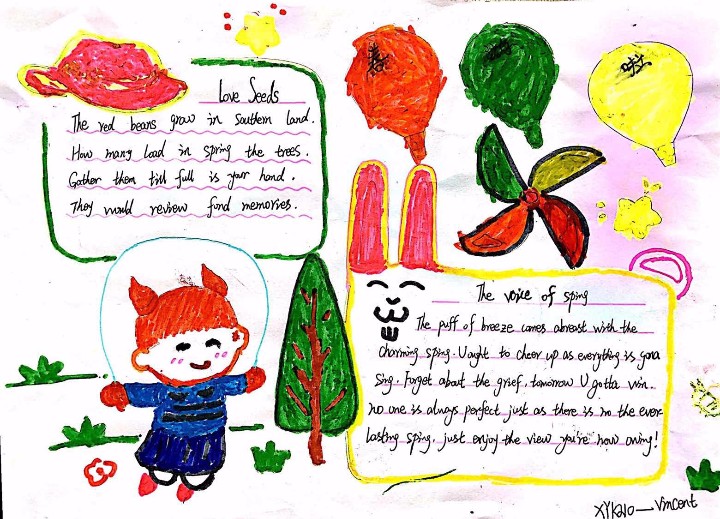 Love Seeds
The red beans grow in southern land.
How many load in spring the trees.
Gather them till full is your hand.
They would review fond memories.
The voice of sping
The puff of breeze comes abreast with the
charming sping. U ought to cheer up as everything is gona
sing. Forget about the grief, tomorrow U gotta win.
no one is always perfect just as there is no the ever
lasting sping, just enjoy the view you're now owing!
Vincent